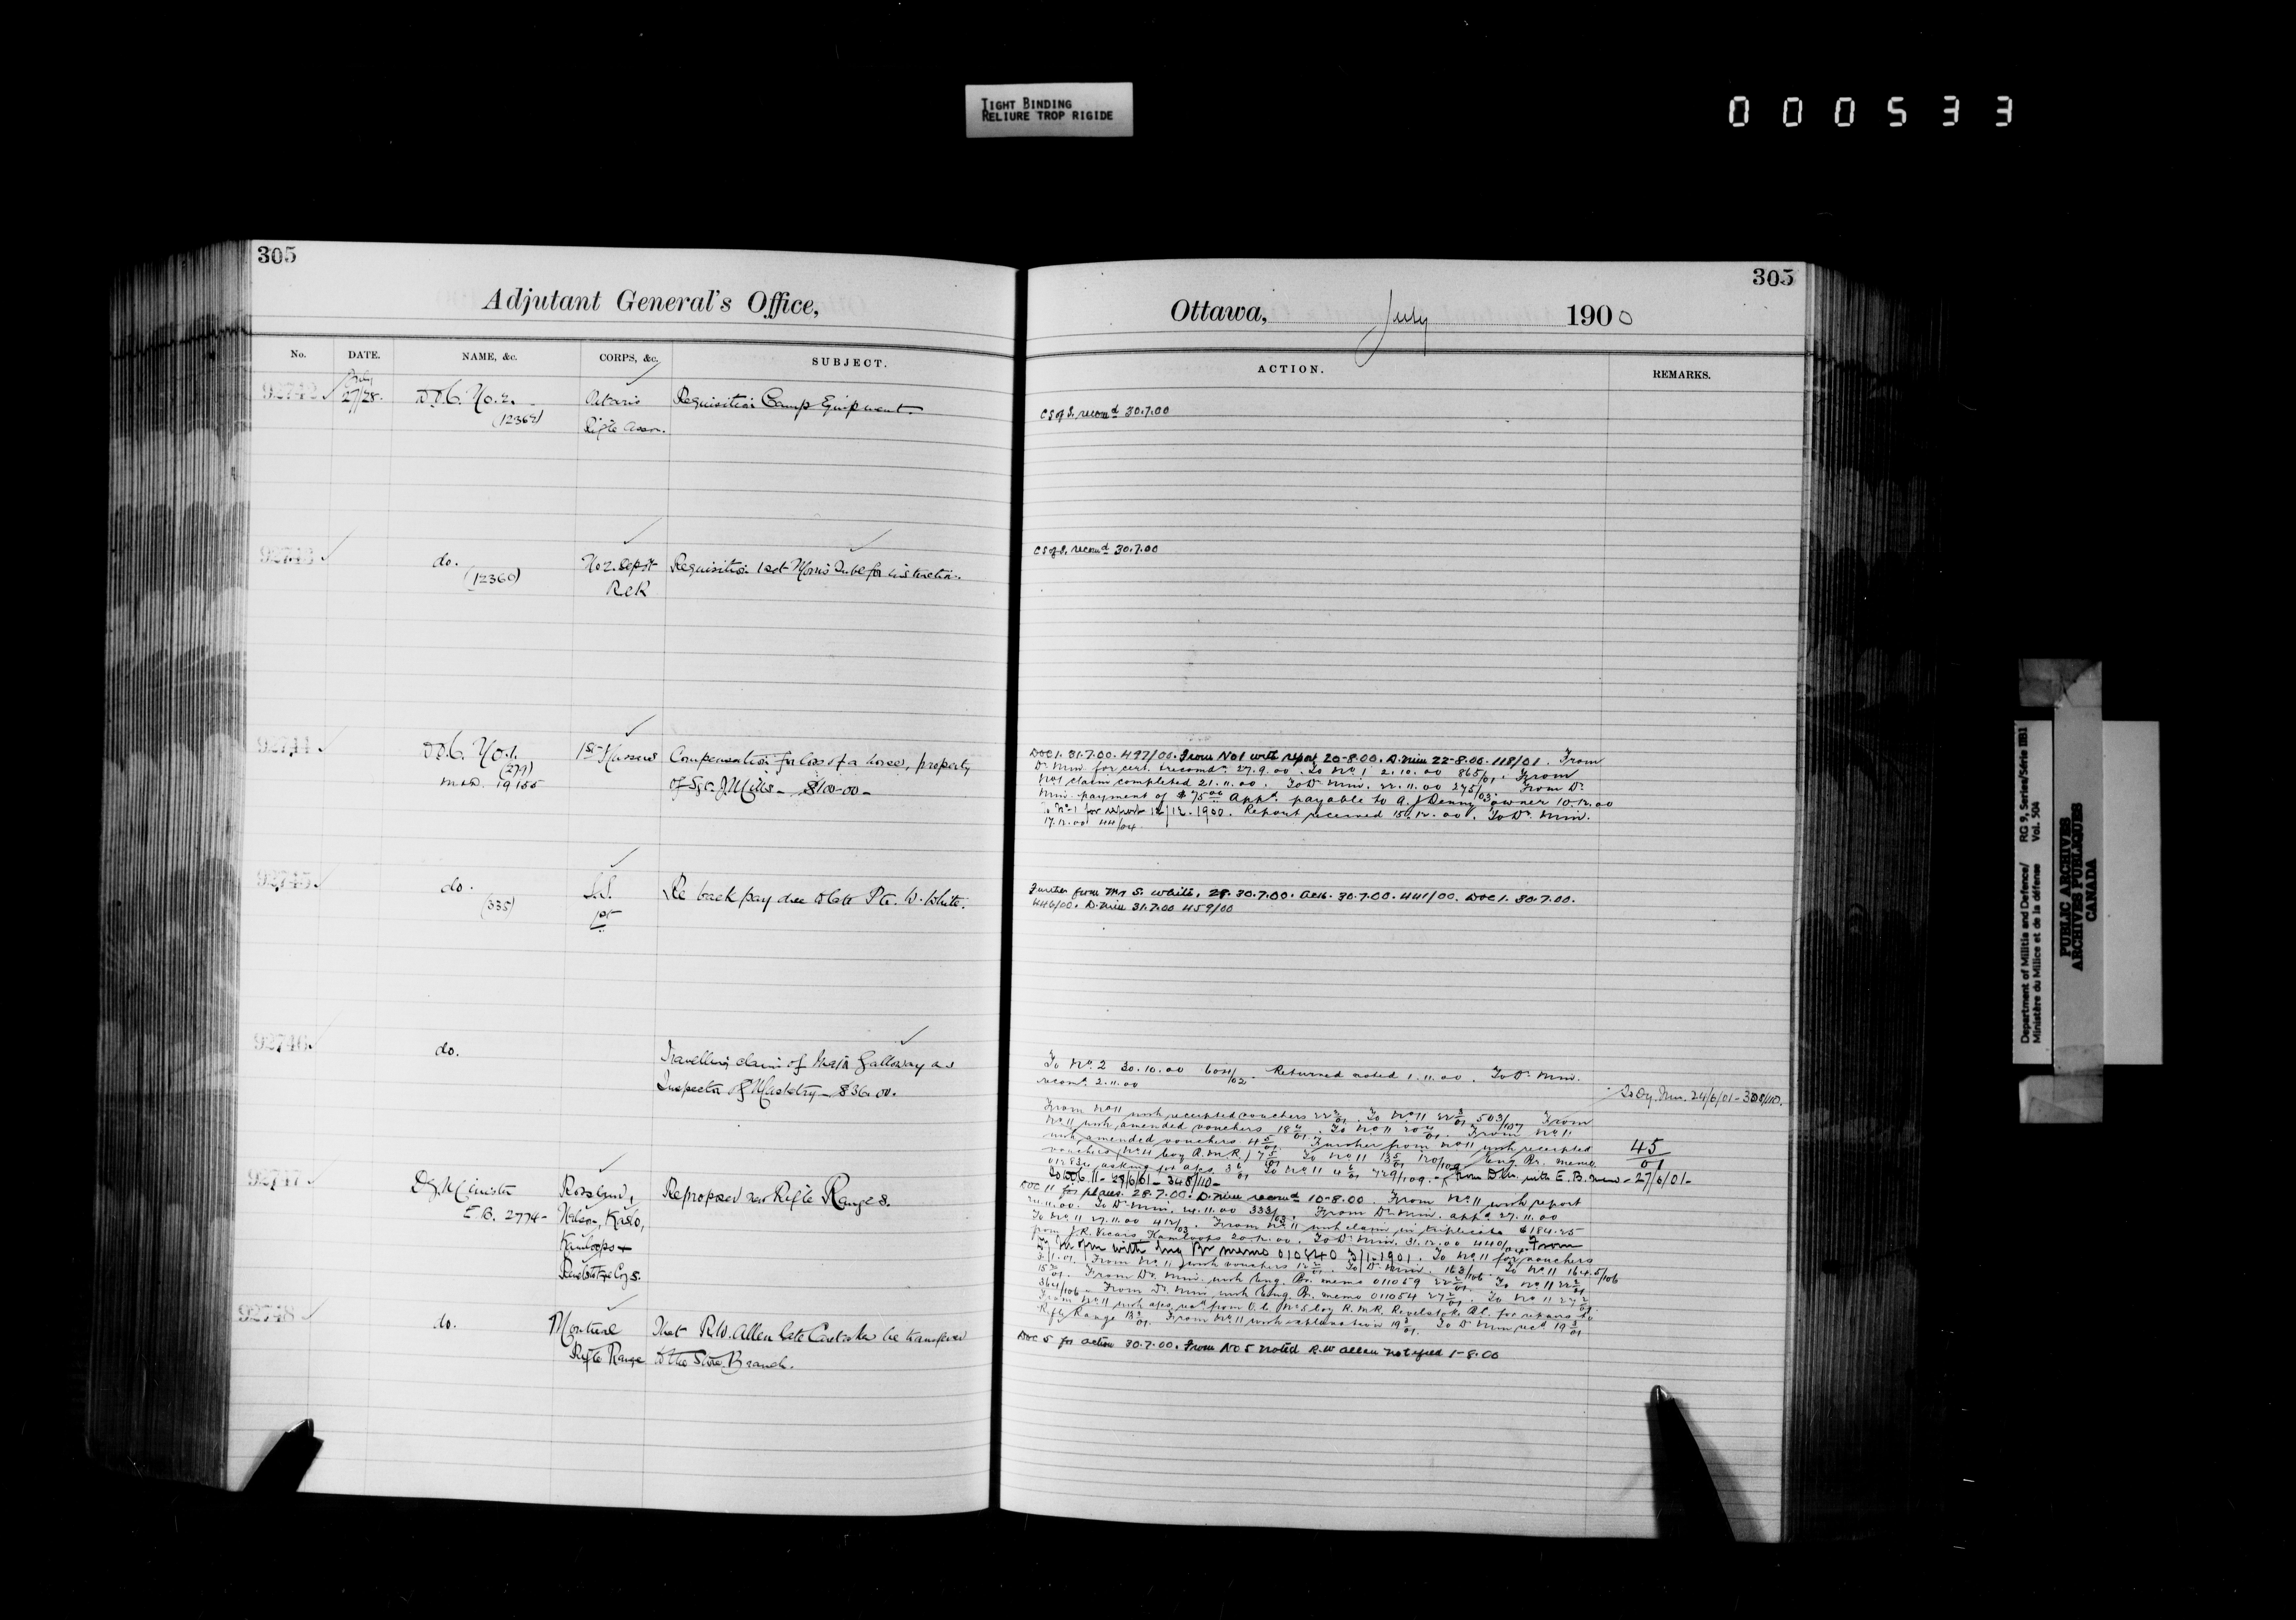 TIGHT BINDING
RELIURE TROP RIGIDE
000533
305
Adjutant General's Office,
No. DATE. NAME, &c. CORPS, &c. SUBJECT.
92742 July 27/28. D.O.C. No. 2. Ontario Requisition Camp Equipment
Rifle Assn.
92743 do. No 2 Depôt Requisition 1 set Morris Tube for instruction.
(12360) RCR
92744 D.O.C. No. 1. 1st Hussars Compensation for loss of a horse, property
(279)
19155 of Sgt. J. Mills - $100.00 -
92745 do. Re back pay due to late Pte. W. White.
(335)
92746 do. Travelling claim of Major Galloway as
Inspector of Musketry - $36.00.
92747 Dy. Minister Rossland, Re proposed new Rifle Ranges.
E.B. 2774 - Nelson, Kaslo,
Kamloops +
Revelstoke Coys.
92748 do. Montreal That R.W. Allen late Caretaker be transferred
Rifle Range to the Store Branch.
305
Ottawa, July 1900
ACTION. REMARKS.
C S of S. recomd 30.7.00
C S of S. recomd 30.7.00
DOC 1. 31.7.00. 497/00. From No 1 with report 20-8.00. D. Min 22-8.00. 118/01. From
Dr. Min. for cert. & recomd. 27.9.00. To No. 1 2.10.00 865/01. From
No 1 claim completed 21.11.00. To Dr. Min. 22.11.00 275/03. From Dr.
Min. payment of $75.00 appd. payable to A. J Denny owner 10.12.00
To No 1 for report 12/12.1900. Report received 15.12.00. To Dr. Min.
17.12.00 44/04
Further from Mrs S. White, 28. 30.7.00. Ack. 30.7.00. 441/00. DOC 1. 30.7.00.
446/00. D. Min 31.7.00 459/00
To No. 2 30.10.00 604/02. Returned noted 1.11.00. To Dr. Min.
recomd. 2.11.00
To Dy. Min. 24/6/01 - 308/110.
From No 11 with receipted vouchers 22/3/01. To No 11 22/3/01 503/107 From
No 11 with amended vouchers 18/4/01. To No 11 20/4/01. From No 11
with amended vouchers 4/5/01. Further from No 11 with receipted 45/01
vouchers (No 11 Coy R.M.R.) 7/5/01 To No 11 13/5/01 120/109 Eng. Br. memo.
asking for aps. 3/6/01 To No 11 4/6/01 729/109. - From D.M. with E. B. memo - 27/6/01 -
To DOC 11 - 28/6/01 - 348/110 -
DOC 11 for plans. 28.7.00. D. Min recomd 10-8.00. From No 11 with report
To Dr. Min. 333/03. From Dr. Min. appd. 27.11.00
To No 11 27.11.00 412/03. From No 11 with claim in triplicate $184.25
from J.R. Vicars Kamloops 20.12.00. To Dr. Min. 31.12.00 440/04 From
Dr. Min with Eng Br memo 010840 3/1.1901. To No 11 for vouchers
From No 11 with vouchers To Dr Min. 163/106 To No 11 164.5/106
From Dr. Min. with Eng. Br. memo 011059 22/2/01 To No 11 22/2/01
364/106 - From Dr. Min. with Eng. Br. memo 011054 27/2/01. To No 11 27/2/01.
From No 11 with aps. recd. from O.C. No 5 Coy R.M.R. Revelstoke B.C. for repairs to
Rifle Range 13/3/01. From No. 11 with explanation 19/3/01. To D Min recd 19/3/01
DOC 5 for action 30.7.00. From No 5 noted R.W Allen notified 1-8.00
Department of Militia and Defence/ RG 9, Series/Série IIB1
Ministère du Milice et de la défense Vol. 504
PUBLIC ARCHIVES
ARCHIVES PUBLIQUES
CANADA